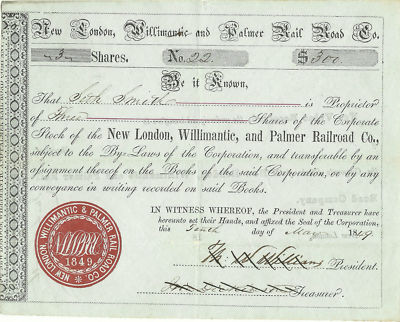 New London, Willimantic and Palmer Rail Road Co.
3 Shares. No. 22 $300
Be it Known,
That Seth Smith is Proprietor
of Three Shares of the Corporate
Stock of the New London, Willimantic, and Palmer Railroad Co.,
subject to the By-Laws of the Corporation, and transferable by an
assignment thereof on the Books of the said Corporation, or by any
conveyance in writing recorded on said Books.
IN WITNESS WHEREOF, the President and Treasurer have
hereunto set their Hands, and affixed the Seal of the Corporation,
this Tenth day of May 1849.
Williams President.
Treasurer.
NEW LONDON, WILLIMANTIC & PALMER RAIL ROAD CO.
1849.